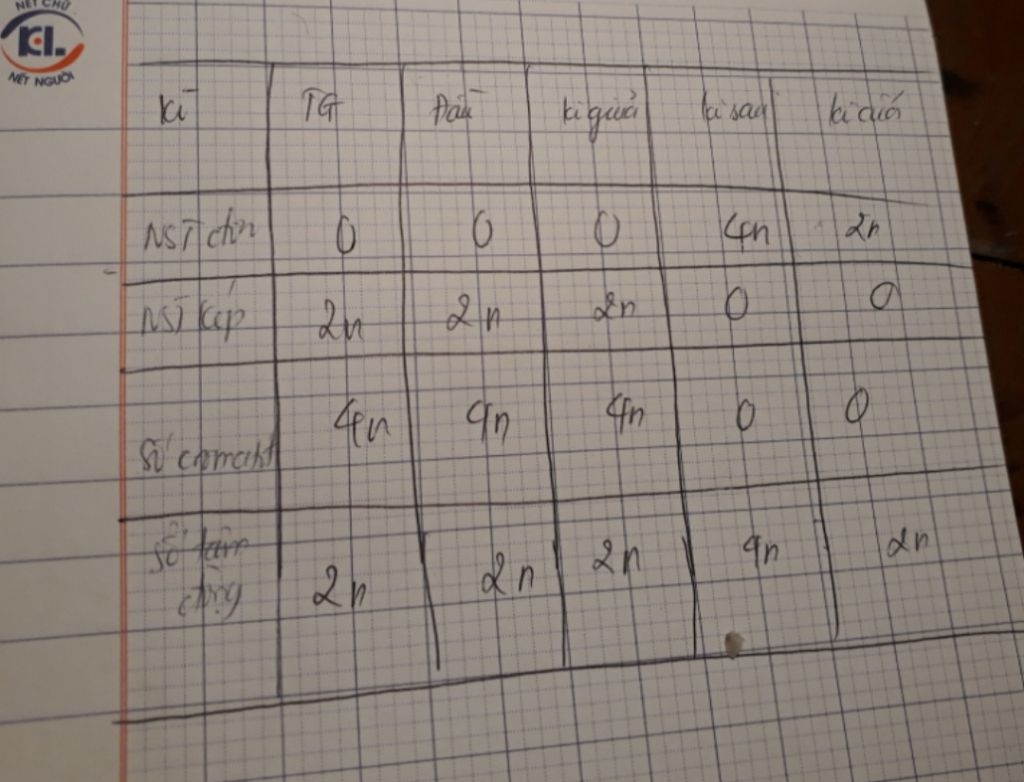 NÉT CHỮ
KEL
NẾT NGƯỜI
Kì TG Đầu kì giữa kì sau kì cuối
NST đơn 0 0 0 4n 2n
NST kép 2n 2n 2n 0 0
Số cromatit 4n 4n 4n 0 0
Số tâm
động 2n 2n 2n 4n 2n